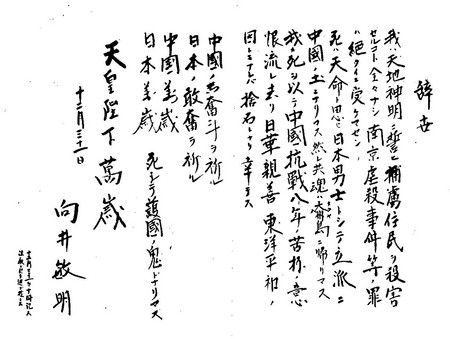 辞世
我ハ天地神明ニ誓ヒ捕虜住民ヲ殺害
セルコト全々ナシ 南京虐殺事件等ノ罪
ハ絶対ニ受ケマセン
死ハ天命ト思ヒ日本男士トシテ立派ニ
中國ノ土ニナリマス 然レ共魂ハ大八島ニ帰リマス
我ガ死ヲ以テ中國抗戦八年ノ苦杯ノ
恨流レ去リ日華親善 東洋平和ノ
因トモナレバ捨石トナリ幸デス
中國ノ奮斗ヲ祈ル
日本ノ敢奮ヲ祈ル
中國萬歳
日本萬歳 死シテ護國ノ鬼トナリマス
天皇陛下萬歳
十二月三十一日
向井敏明